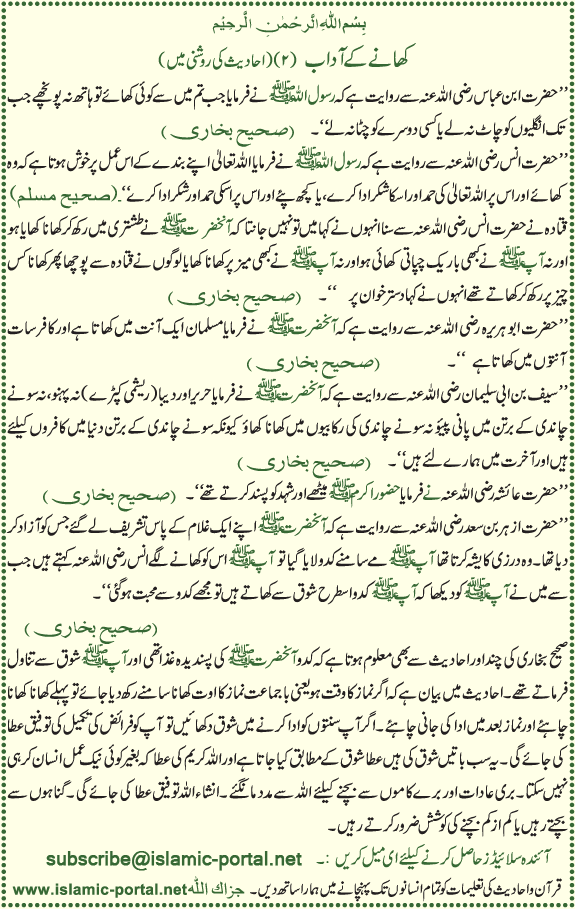 بِسْمِ اللهِ الرَّحْمٰنِ الرَّحِيْمِ
کھانے کے آداب (۲)(احادیث کی روشنی میں)
’’حضرت ابن عباس رضی اللہ عنہ سے روایت ہے کہ رسول اللہ ﷺ نے فرمایا جب تم میں سے کوئی کھائے تو ہاتھ نہ پونچھے جب
تک انگلیوں کو چاٹ نہ لے یا کسی دوسرے کو چٹا نہ لے‘‘۔ (صحیح بخاری)
’’حضرت انس رضی اللہ عنہ سے روایت ہے کہ رسول اللہ ﷺ نے فرمایا اللہ تعالیٰ اپنے بندے کے اس عمل پر خوش ہوتا ہے کہ وہ
کھائے اور اس پر اللہ تعالیٰ کی حمد اور اسکا شکر ادا کرے، یا کچھ پئے اور اس پر اسکی حمد اور شکر ادا کرے‘‘۔ (صحیح مسلم)
قتادہ نے حضرت انس رضی اللہ عنہ سے سنا انہوں نے کہا میں تو نہیں جانتا کہ آنحضرت ﷺ نے طشتری میں رکھ کر کھانا کھایا ہو
اور نہ آپ ﷺ نے کبھی باریک چپاتی کھائی ہو اور نہ آپ ﷺ نے کبھی میز پر کھانا کھایا لوگوں نے قتادہ سے پوچھا پھر کھانا کس
چیز پر رکھ کر کھاتے تھے انہوں نے کہا دستر خوان پر ‘‘۔ (صحیح بخاری)
’’حضرت ابو ہریرہ رضی اللہ عنہ سے روایت ہے کہ آنحضرت ﷺ نے فرمایا مسلمان ایک آنت میں کھاتا ہے اور کافر سات
آنتوں میں کھاتا ہے ‘‘۔ (صحیح بخاری)
’’سیف بن ابی سلیمان رضی اللہ عنہ سے روایت ہے کہ آنحضرت ﷺ نے فرمایا حریر اور دیبا (ریشمی کپڑے) نہ پہنو، نہ سونے
چاندی کے برتن میں پانی پیئو نہ سونے چاندی کی رکابیوں میں کھانا کھاؤ کیونکہ سونے چاندی کے برتن دنیا میں کافروں کیلئے
ہیں اور آخرت میں ہمارے لئے ہیں‘‘۔ (صحیح بخاری)
’’حضرت عائشہ رضی اللہ عنہ نے فرمایا حضور اکرم ﷺ میٹھے اور شہد کو پسند کرتے تھے‘‘۔ (صحیح بخاری)
’’حضرت ازہر بن سعد رضی اللہ عنہ سے روایت ہے کہ آنحضرت ﷺ اپنے ایک غلام کے پاس تشریف لے گئے جس کو آزاد کر
دیا تھا۔ وہ درزی کا پیشہ کرتا تھا آپ ﷺ کے سامنے کدو لایا گیا تو آپ ﷺ اس کو کھانے لگے انس رضی اللہ عنہ کہتے ہیں جب
سے میں نے آپ ﷺ کو دیکھا کہ آپ ﷺ کدو اسطرح شوق سے کھاتے ہیں تو مجھے کدو سے محبت ہو گئی‘‘۔
(صحیح بخاری)
صحیح بخاری کی چند اور احادیث سے بھی معلوم ہوتا ہے کہ کدو آنحضرت ﷺ کی پسندیدہ غذا تھی اور آپ ﷺ شوق سے تناول
فرماتے تھے۔ احادیث میں بیان ہے کہ اگر نماز کا وقت ہو یعنی با جماعت نماز کا اوت کھانا سامنے رکھ دیا جائے تو پہلے کھانا کھانا
چاہئے اور نماز بعد میں ادا کی جانی چاہئے۔ اگر آپ سنتوں کو ادا کرنے میں شوق دکھائیں تو آپ کو فرائض کی تکمیل کی توفیق عطا
کی جائے گی۔ یہ سب باتیں شوق کی ہیں عطا شوق کے مطابق کیا جاتا ہے اور اللہ کریم کی عطا کہ بغیر کوئی نیک عمل انسان کر ہی
نہیں سکتا۔ بری عادات اور برے کاموں سے بچنے کیلئے اللہ سے مدد مانگئے۔ انشاء اللہ توفیق عطا کی جائے گی۔ گناہوں سے
بچتے رہیں یا کم از کم بچنے کی کوشش ضرور کرتے رہیں۔
آئندہ سلائیڈز حاصل کرنے کیلئے ای میل کریں :۔ subscribe@islamic-portal.net
قرآن و احادیث کی تعلیمات کو تمام انسانوں تک پہنچانے میں ہمارا ساتھ دیں۔ جزاك الله www.islamic-portal.net